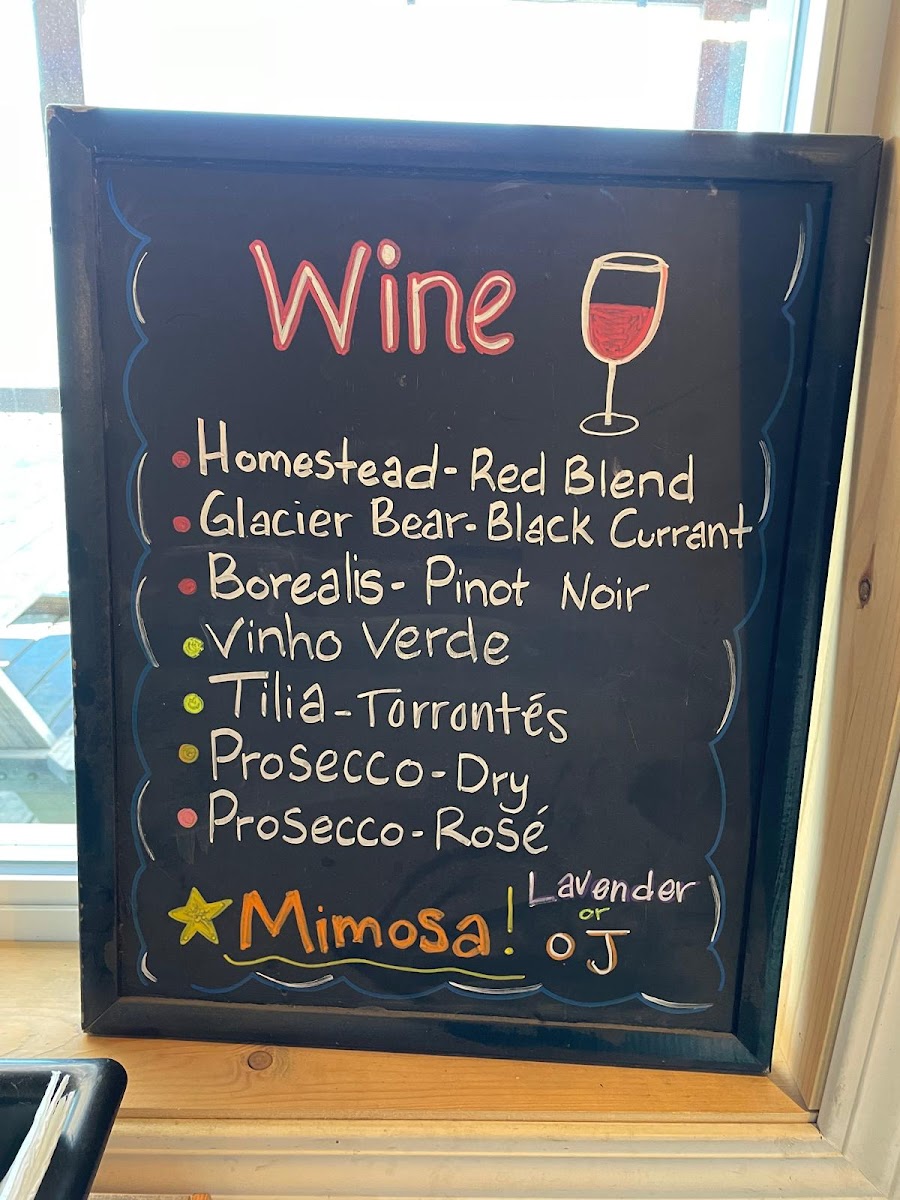 Wine
Homestead - Red Blend
Glacier Bear - Black Currant
Borealis - Pinot Noir
Vinho Verde
Tilia - Torrontés
Prosecco - Dry
Prosecco - Rosé
Mimosa! Lavender
or
OJ